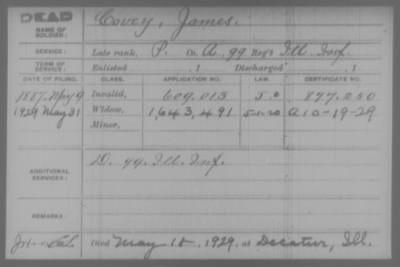 DEAD
NAME OF SOLDIER: Covey, James.
SERVICE: Late rank, P. Co. A, 99 Reg't Ill. Inf.
TERM OF SERVICE: Enlisted , 1 Discharged , 1
DATE OF FILING. CLASS. APPLICATION NO. LAW. CERTIFICATE NO.
1887. May 9 Invalid, 609.013 877.050
1929 May 31 Widow, 1,643,491 5-1-20 A 10-19-29
Minor,
ADDITIONAL SERVICES: D. 99. Ill. Inf.
REMARKS:
Died May 18, 1929, at Decatur, Ill.